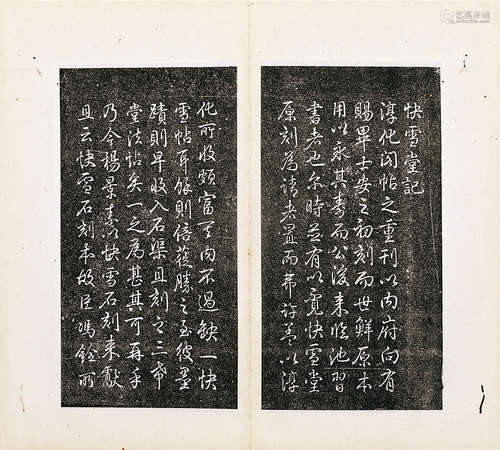 快雪堂記
淳化閣帖之重刊以內府向有
賜畢士安之初刻而世鮮原本
用以永其壽而公後來臨池習
書者也尔時並有以覓快雪堂
原刻為請者置而弗許蓋以淳
化所收頗富其內不過缺一快
雪帖耳餘則倍蓰勝之至彼墨
蹟則早收入石渠且刻之三希
堂法帖矣一之為甚其可再乎
乃今楊景素以快雪石刻來獻
且云快雪石刻本故臣馮銓所